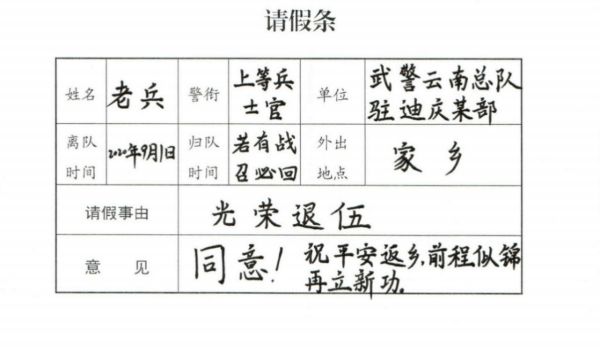 请假条
姓名 老兵 警衔 上等兵 士官 单位 武警云南总队 驻迪庆某部
离队时间 2020年9月1日 归队时间 若有战 召必回 外出地点 家乡
请假事由 光荣退伍
意见 同意! 祝平安返乡,前程似锦
再立新功.